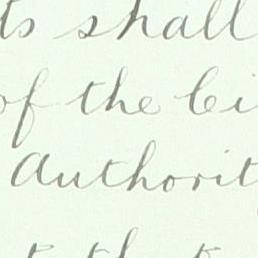 ts shall
of the Ci
Authorit